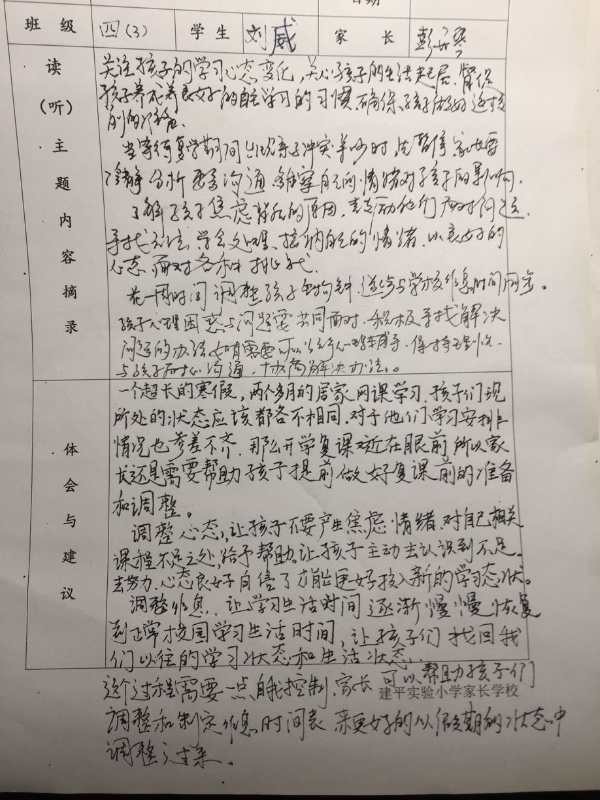 日期
班 级 四(3) 学 生 刘威 家 长 彭
读(听)主题内容摘录
关注孩子的学习心态变化,关心孩子的生活起居,督促
孩子养成养良好的自主学习的习惯,确保孩子做好返校
前的准备。
当等待复学期间出现亲子冲突争吵时,先暂停,家长要
冷静分析 沟通,觉察自己的情绪对孩子的影响。
了解孩子焦虑背后的原因,主动他们面对问题,
寻找方法,学会处理、接纳自己的情绪,以良好的
心态面对各种挑战。
花一周时间调整孩子生物钟,逐步与学校作息时间同步。
孩子心理困惑与问题要共同面对,积极寻找解决
问题的办法,如有需要可以
与孩子耐心沟通,协商解决办法。
体会与建议
一个超长的寒假,两个多月的居家网课学习,孩子们现
所处的状态应该都各不相同,对于他们学习安排上
情况也参差不齐,那么开学复课就近在眼前,所以家
长还是需要帮助孩子提前做好复课前的准备
和调整。
调整心态,让孩子不要产生焦虑情绪,对自己相关
课程不足之处,给予帮助,让孩子主动去认识到不足。
去努力,心态良好自信了才能更好投入新的学习态状。
调整作息,让学习生活时间逐渐慢慢恢复
到正常校园学习生活时间,让孩子们找回我
们以往的学习状态和生活状态。
这个过程需要一点自我控制,家长可以帮助孩子们
建平实验小学家长学校
调整和制定作息时间表,来更好的从假期的状态中
调整过来。